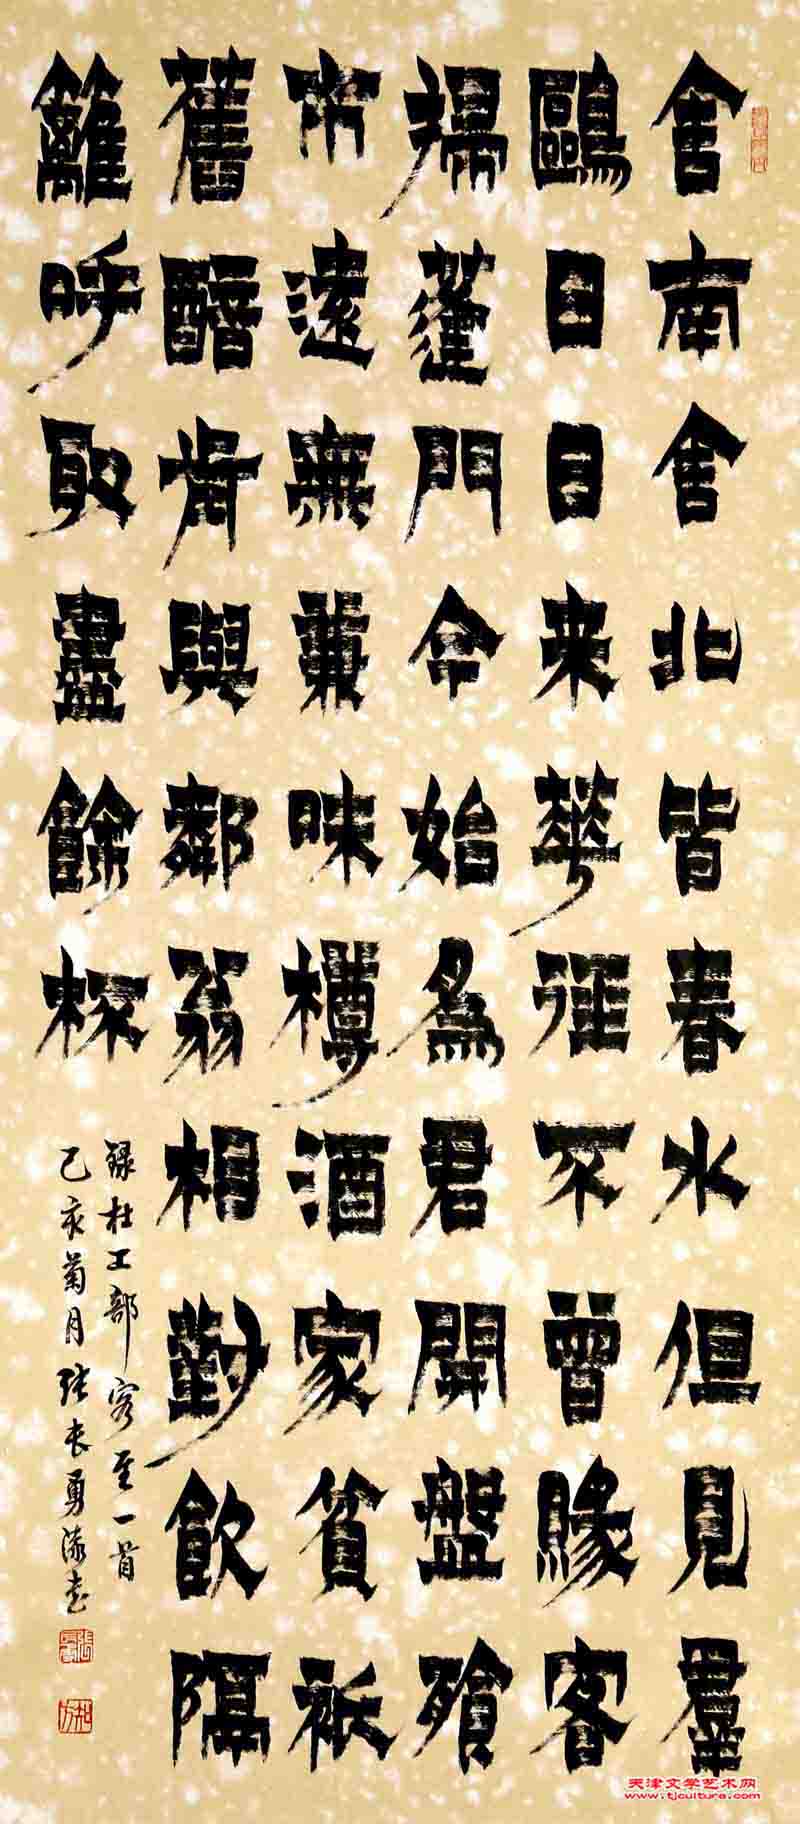 舍南舍北皆春水但見羣
鷗日日来華徑不曾緣客
掃蓬門今始為君開盤飧
市遠無兼味樽酒家貧祇
舊醅肯與鄰翁相對飲隔
籬呼取盡餘杯
録杜工部客至一首
己亥菊月張長勇漆書
天津文学艺术网
www.tjculture.com